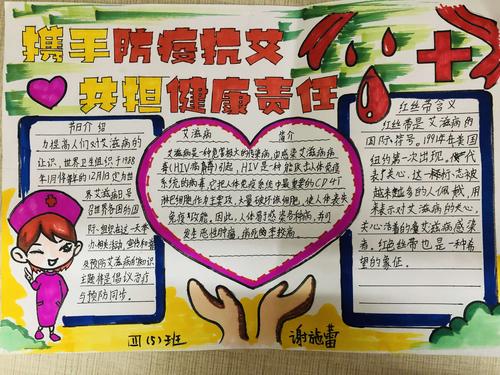 携手防疫抗艾
共担健康责任
节日介绍
为提高人们对艾滋病的
认识,世界卫生组织于1988
年1月将每年的12月1日定为世
界艾滋病日,号
召世界各国和国
际组织在这一天举
办相关活动,宣传和普
及预防艾滋病的知识
主题是倡议治疗
与预防同步。
艾滋病 简介
艾滋病是一种危害极大的传染病,由感染艾滋病病
毒(HIV病毒)引起,HIV是一种能攻击人体免疫
系统的病毒,它把人体免疫系统中最重要的CD4T
淋巴细胞作为主要攻,大量破坏该细胞,使人体丧失
免疫功能。因此,人体易于感染各种病,并可
发生恶性肿瘤,病死率较高。
红丝带含义
红丝带是艾滋病的
国际符号。1991年在美国
纽约第一次出现。代
表关心,这一标志被
越来越多的人佩戴,用
来表示对艾滋病的关心。
关心活着的艾滋病感染
者。红丝带也是一种希
望的象征。
三(5)班
谢施蕾